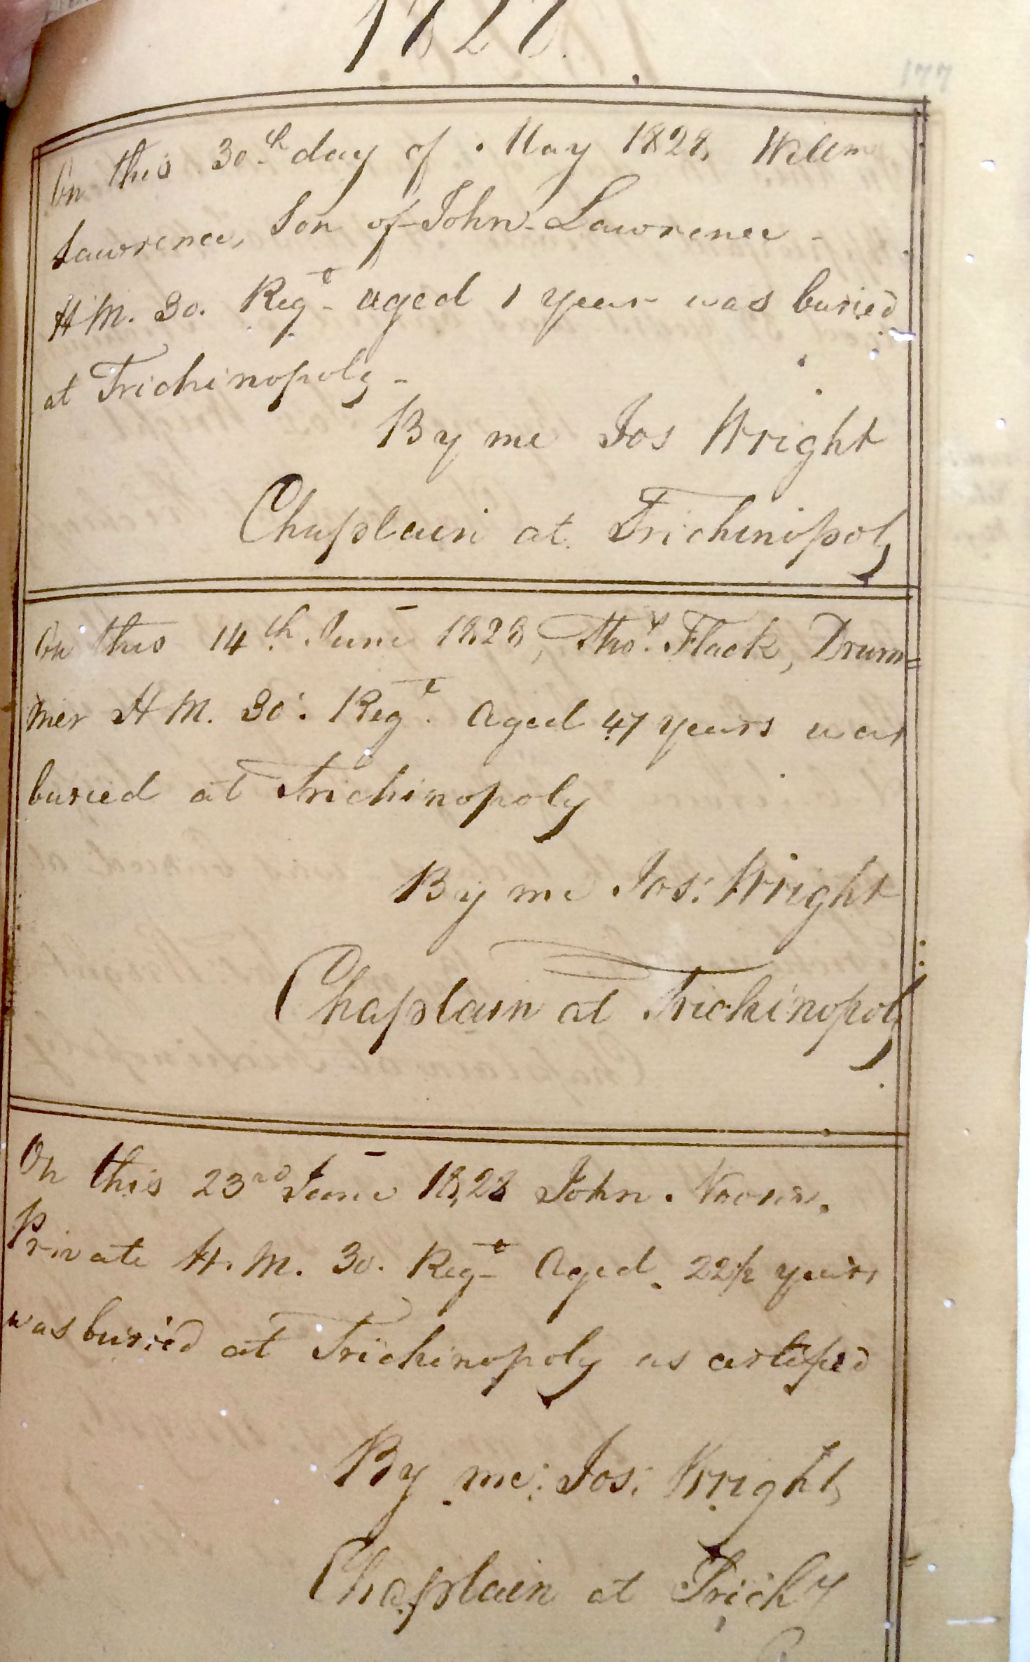 1828.
177
On this 30th day of May 1828, Willm
Lawrence, Son of John Lawrence -
H M. 30. Regt - aged 1 year was buried
at Trichinopoly -
By me Jos Wright
Chaplain at Trichinipoly
On this 14th June 1828, Thos. Flack, Drum=
mer H M. 30. Regt. Aged 47 years was
buried at Trichinopoly
By me Jos: Wright
Chaplain at Trichinopoly
On this 23rd June 1828 John
Private H. M. 30. Regt - Aged 22½ years
was buried at Trichinopoly as certified
By me: Jos: Wright
Chaplain at Trichy